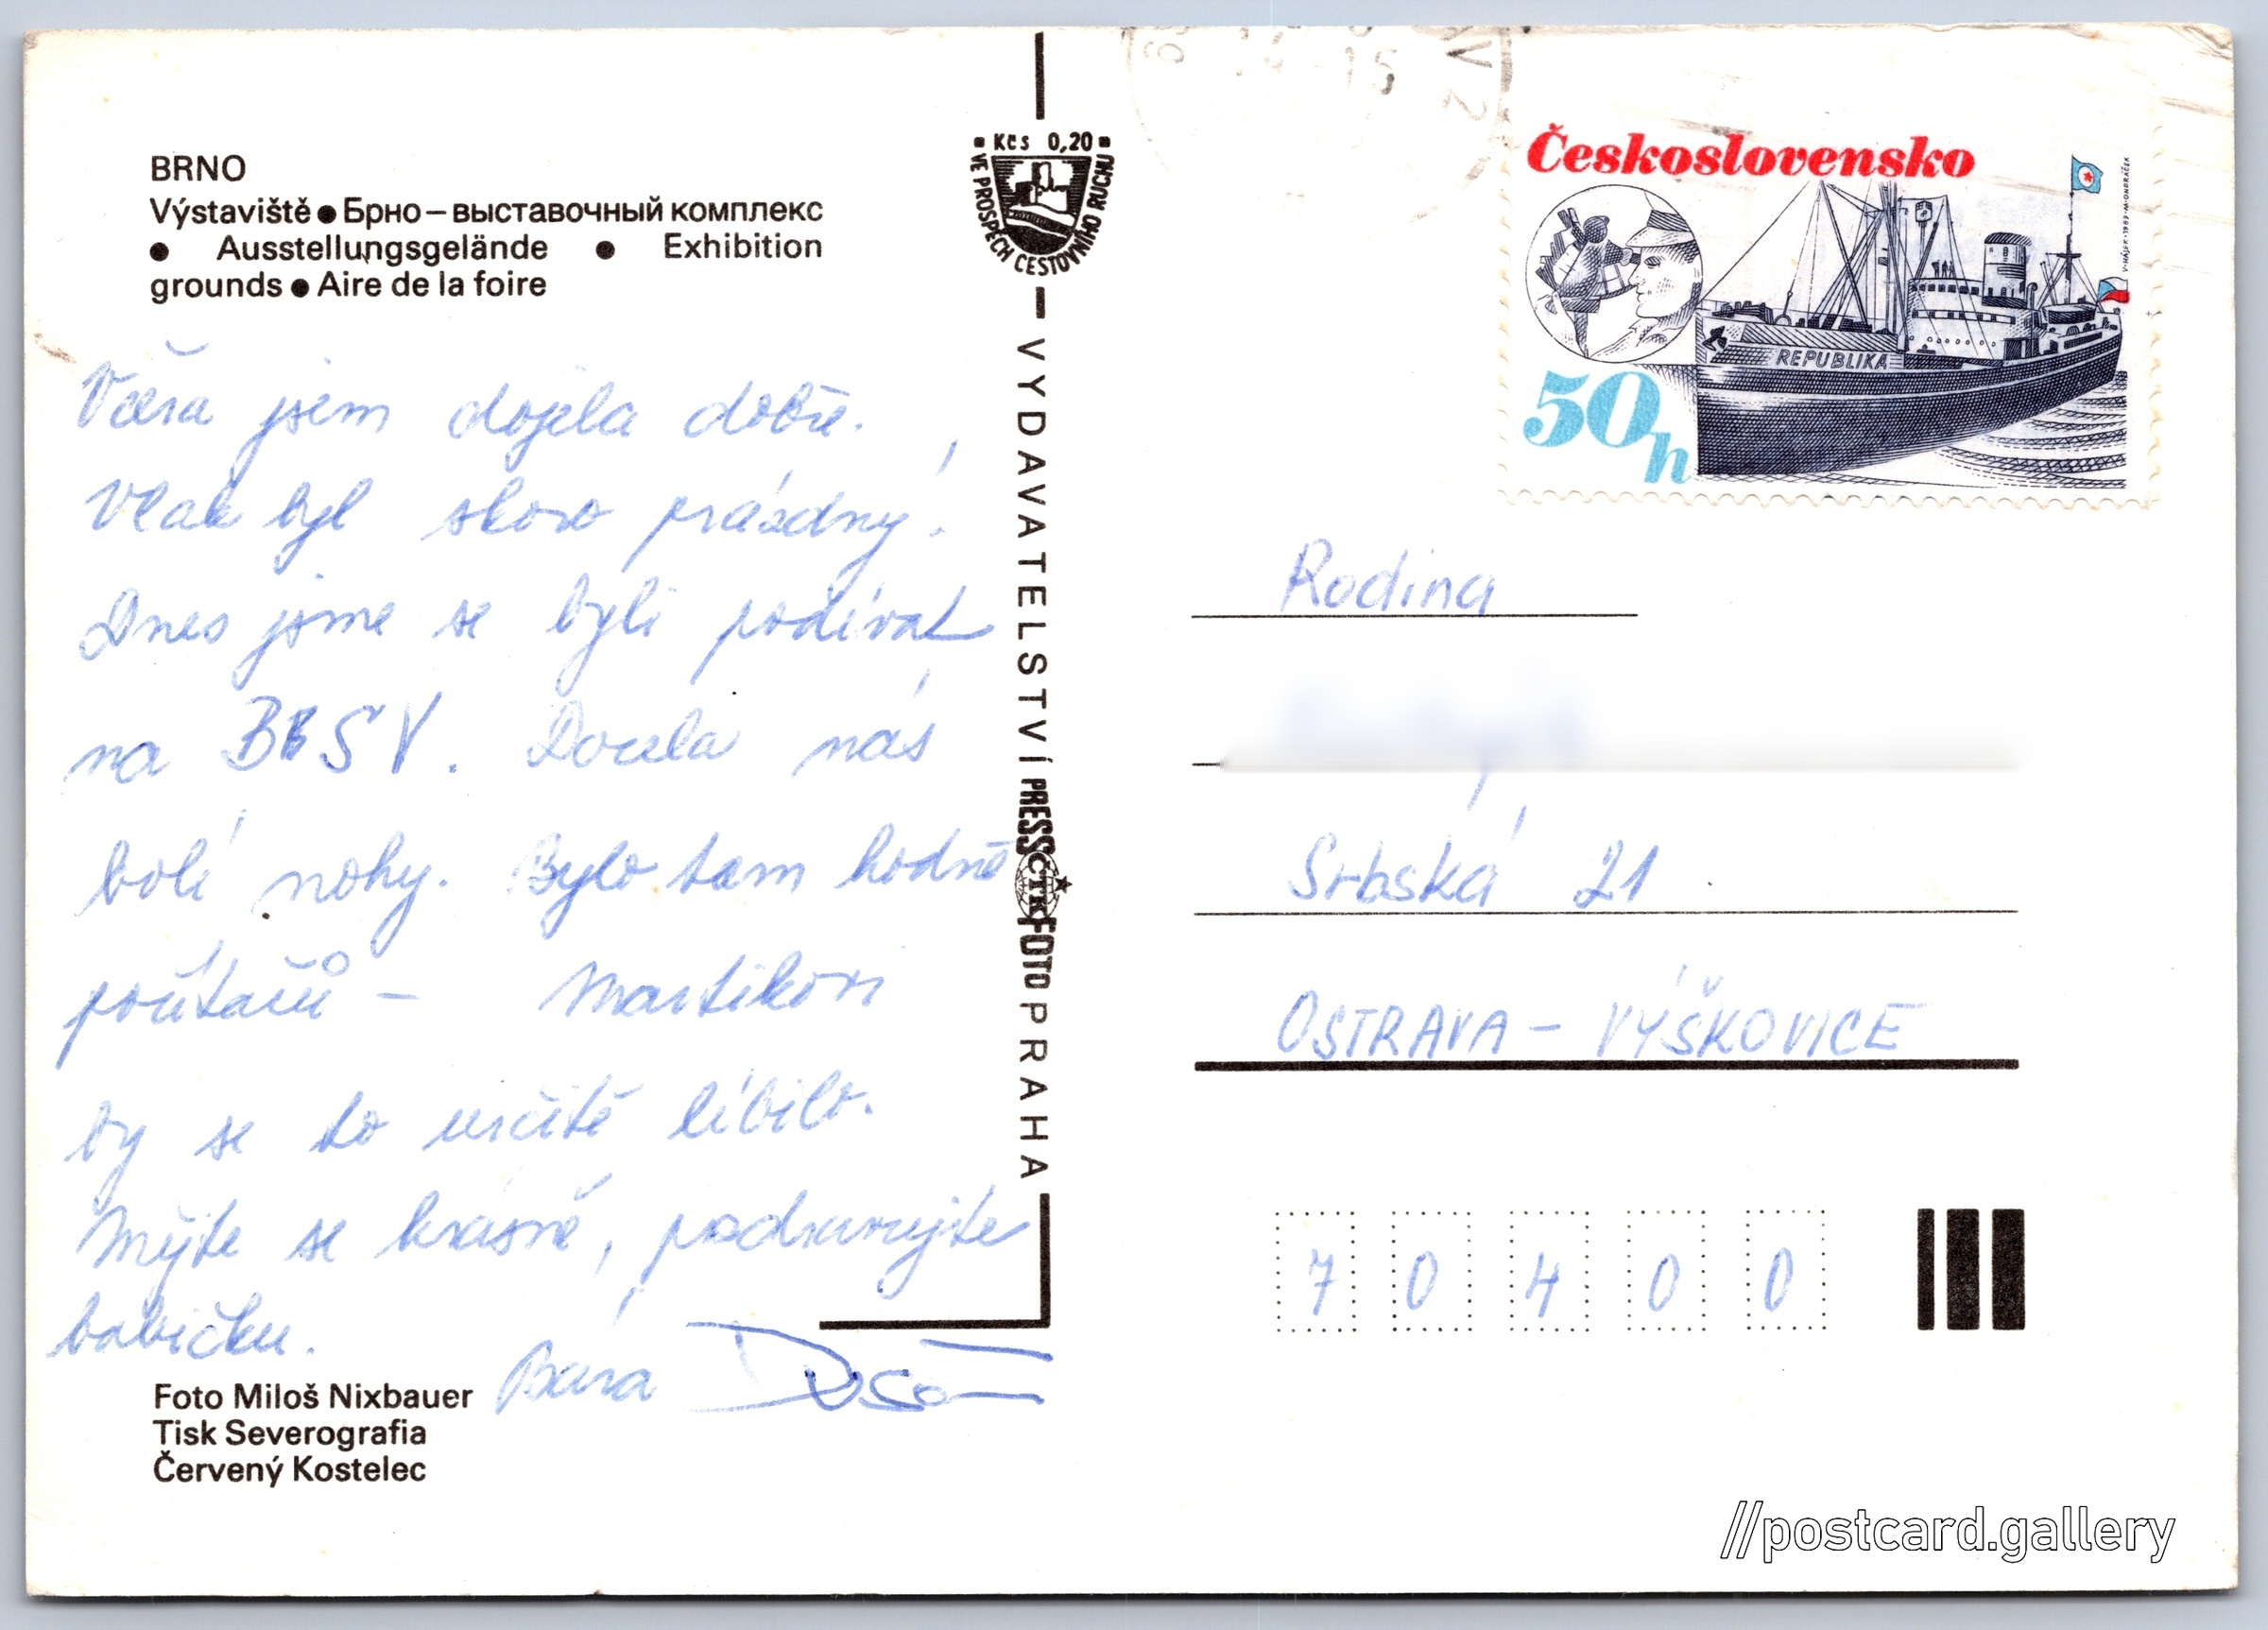 BRNO
Výstaviště ● Брно – выставочный комплекс
● Ausstellungsgelände ● Exhibition
grounds ● Aire de la foire
Včera jsem dojela dobře.
Vlak byl skoro prázdný.
Dnes jsme se byli podívat
na BVSV. Docela nás
bolí nohy. Bylo tam hodně
počítačů – Martikovi
by se to určitě líbilo.
Mějte se krásně, pozdravujte
babičku.
Bára
Foto Miloš Nixbauer
Tisk Severografia
Červený Kostelec
Kčs 0,20
VE PROSPĚCH CESTOVNÍHO RUCHU
VYDAVATELSTVÍ PRESSFOTO PRAHA
ČTK
14-15
V 2
Československo
REPUBLIKA
50h
V. HÁJEK • 1989 • M. ONDRÁČEK
Rodina
Srbská 21
OSTRAVA – VÝŠKOVICE
7 0 4 0 0
//postcard.gallery